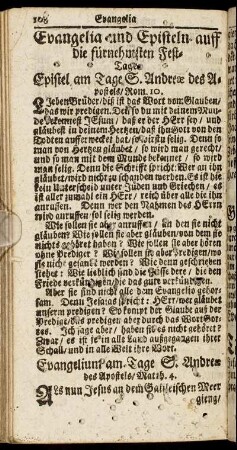 108 Evangelia
Evangelia und Episteln auff
die fürnehmsten Fest-
Tage.
Epistel am Tage S. Andreæ des A-
postels/ Rom. 10.
LJeben Brüder/ diß ist das Wort vom Glauben/
das wir predigen. Denn so du mit deinem Mun-
de bekennest JEsum/ daß er der HErr sey/ und
gläubest in deinem Hertzen/ daß ihn Gott von den
Todten aufferwecket hat/ so wirstu selig. Denn so
man von Hertzen gläubet/ so wird man gerecht/
und so man mit dem Munde bekennet/ so wird
man selig. Denn die Schrifft spricht: Wer an ihn
gläubet/ wird nicht zu schanden werden. Es ist hie
kein Unterscheid unter Jüden und Griechen/ es
ist aller zumahl ein HErr/ reich über alle die ihn
anruffen. Denn wer den Nahmen des HErrn
wird anruffen/ sol selig werden.
Wie sollen sie aber anruffen/ an den sie nicht
gläuben? Wie sollen sie aber gläuben/ von dem sie
nichts gehöret haben? Wie sollen sie aber hören
ohne Prediger? Wie sollen sie aber predigen/ wo
sie nicht gesandt werden? Wie denn geschrieben
stehet: Wie lieblich sind die Füsse dere/ die den
Friede verkündigen/ die das gute verkündigen.
Aber sie sind nicht alle dem Evangelio gehor-
sam. Denn Jesaias spricht: HErr/ wer gläubet
unserm predigen? So kompt der Glaube auß der
Predigt/ das predigen aber durch das Wort Got-
tes. Jch sage aber/ haben sie es nicht gehöret?
Zwar/ es ist je in alle Land außgegangen ihrer
Schall/ und in alle Welt ihr Wort.
Evangelium am Tage S. Andreæ
des Apostels/ Matth. 4.
ALs nun Jesus an dem Galileischen Meer
gieng/